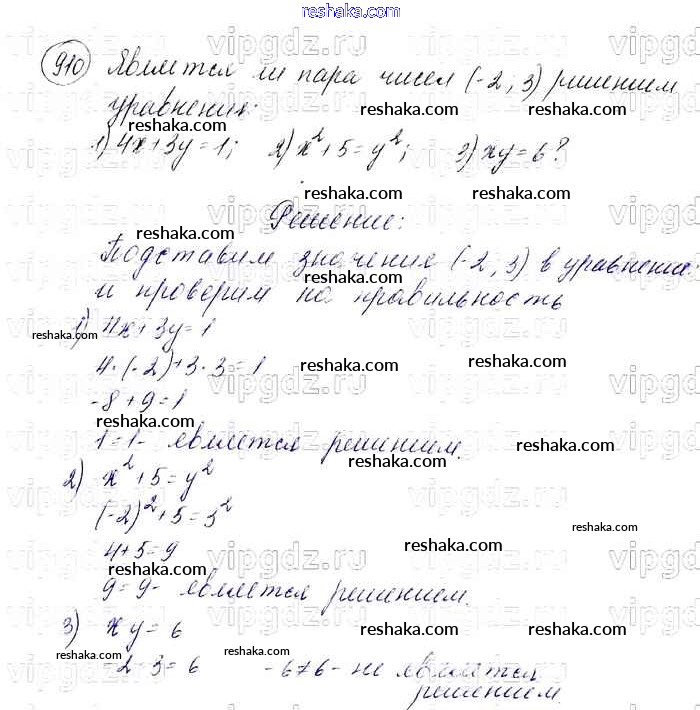 910 Является ли пара чисел (-2; 3) решением
уравнения:
1) 4x+3y=1; 2) x²+5=y²; 3) xy=6?
Решение:
Подставим значение (-2; 3) в уравнение:
и проверим на правильность
1) 4x+3y=1
4·(-2)+3·3=1
-8+9=1
1=1- является решением.
2) x²+5=y²
(-2)²+5=3²
4+5=9
9=9- является решением.
3) xy=6
-2·3=6 -6≠6- не является
решением.
reshaka.com
vipgdz.ru